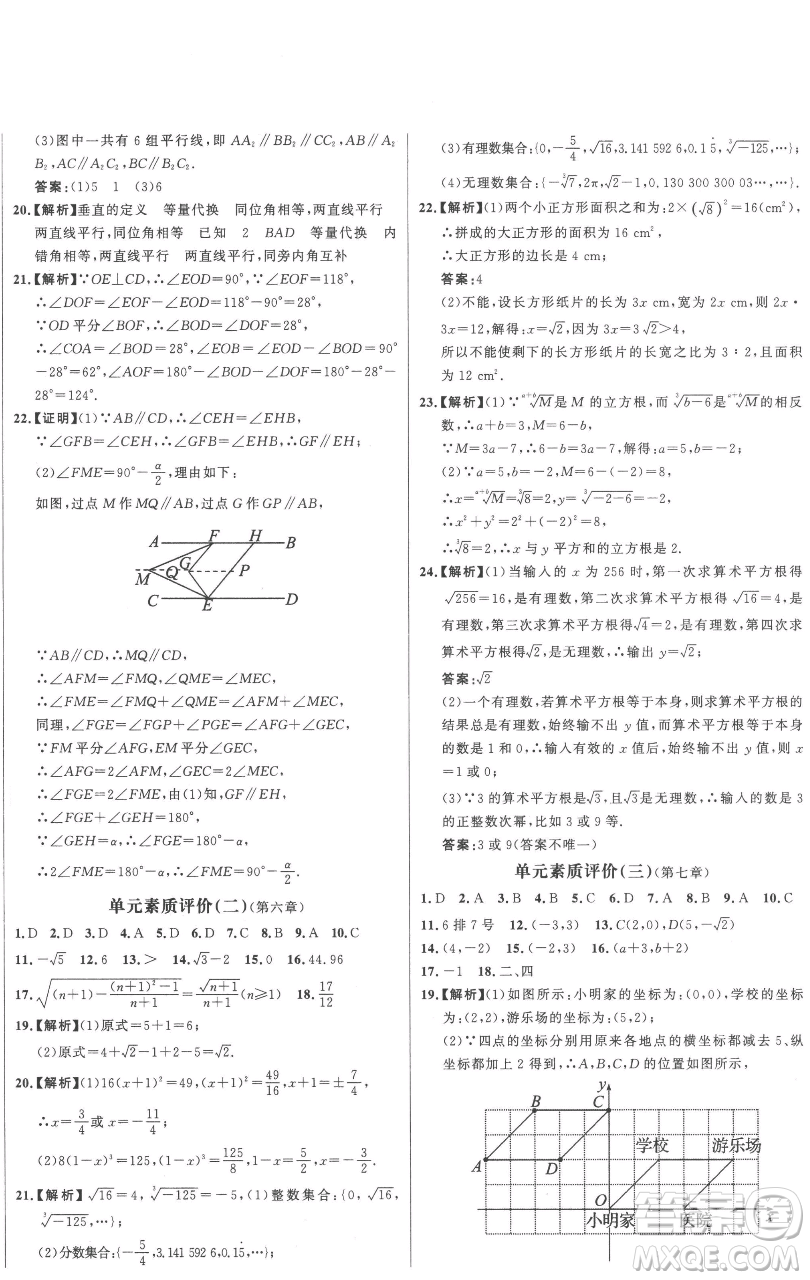 (3)图中一共有 6 组平行线,即 AA₂∥BB₂∥CC₂,AB∥A₂
B₂,AC∥A₂C₂,BC∥B₂C₂.
答案:(1)5 1 (3)6
20.【解析】垂直的定义 等量代换 同位角相等,两直线平行
两直线平行,同位角相等 已知 2 BAD 等量代换 内
错角相等,两直线平行 两直线平行,同旁内角互补
21.【解析】∵OE⊥CD,∴∠EOD=90°,∵∠EOF=118°,
∴∠DOF=∠EOF-∠EOD=118°-90°=28°,
∵OD 平分∠BOF,∴∠BOD=∠DOF=28°,
∴∠COA=∠BOD=28°,∠EOB=∠EOD-∠BOD=90°
-28°=62°,∠AOF=180°-∠DOF-∠BOD=180°-28°
-28°=124°.
22.【证明】(1)∵AB∥CD,∴∠CEH=∠EHB,
∵∠GFB=∠CEH,∴∠GFB=∠EHB,∴GF∥EH;
(2)∠FME=90°-α/2,理由如下:
如图,过点 M 作 MQ∥AB,过点 G 作 GP∥AB,
A F H B
M Q G P
C E D
∵AB∥CD,∴MQ∥CD,
∴∠AFM=∠FMQ,∠QME=∠MEC,
∴∠FME=∠FMQ+∠QME=∠AFM+∠MEC,
同理,∠FGE=∠FGP+∠PGE=∠AFG+∠GEC,
∵FM 平分∠AFG,EM 平分∠GEC,
∴∠AFG=2∠AFM,∠GEC=2∠MEC,
∴∠FGE=2∠FME,由(1)知,GF∥EH,
∴∠FGE+∠GEH=180°,
∵∠GEH=α,∴∠FGE=180°-α,
∴2∠FME=180°-α,∴∠FME=90°-α/2.
单元素质评价(二)(第六章)
1.D 2.D 3.D 4.A 5.D 6.D 7.D 8.A 9.A 10.C
11.-√5 12.6 13.> 14.√3-2 15.0 16.44.96
17.√((n+1)-((n+1)²-1)/(n+1))=√(n+1)/(n+1)(n≥1) 18.17/12
19.【解析】(1)原式=5+1=6;
(2)原式=4+√2-1+2=5+√2.
20.【解析】(1)16(x+1)²=49,(x+1)²=49/16,x+1=±7/4,
∴x=3/4或 x=-11/4;
(2)8(1-x)³=125,(1-x)³=125/8,1-x=5/2,x=-3/2.
21.【解析】√16=4,∛-125=-5,(1)整数集合:{0,√16,
∛-125,…};
(2)分数集合:{-5/4,3.141 592 6,0.15̇,…};
(3)有理数集合:{0,-5/4,√16,3.141 592 6,0.15̇,∛-125,…};
(4)无理数集合:{-∛7,2π,√2-1,0.130 300 300 03…,…}.
22.【解析】(1)两个小正方形面积之和为:2×(√8)²=16(cm²),
∴拼成的大正方形的面积为 16 cm²,
∴大正方形的边长是 4 cm;
答案:4
(2)不能,设长方形纸片的长为 3x cm,宽为 2x cm,则 2x·
3x=12,解得:x=√2,因为 3x=3√2>4,
所以不能使剩下的长方形纸片的长宽之比为 3∶2,且面积
为 12 cm².
23.【解析】(1)∵ᵃ⁺ᵇ√M是 M 的立方根,而∛b-6是ᵃ⁺ᵇ√M的相反
数,∴a+b=3,M=6-b,
∵M=3a-7,∴6-b=3a-7,解得:a=5,b=-2;
(2)∵a=5,b=-2,∴M=8,
∴x=ᵃ⁺ᵇ√M=∛8=2,y=∛b-6=∛-2-6=-2,
∴x²+y²=2²+(-2)²=8,
∴∛8=2,∴x 与 y 平方和的立方根是 2.
24.【解析】(1)当输入的 x 为 256 时,第一次求算术平方根得
√256=16,是有理数,第二次求算术平方根得√16=4,是
有理数,第三次求算术平方根得√4=2,是有理数,第四次求
算术平方根得√2,是无理数,输出,∴y=√2;
答案:√2
(2)一个有理数,若算术平方根等于本身,则求算术平方根的
结果总是有理数,始终输不出 y 值,而算术平方根等于本身
的数是 1 和 0,∴输入有效的 x 值后,始终输不出 y 值,则 x
=1 或 0;
(3)∵3 的算术平方根是√3,且√3是无理数,∴输入的数是 3
的正整数次幂,比如 3 或 9.
答案:3 或 9(答案不唯一)
单元素质评价(三)(第七章)
1.D 2.A 3.B 4.C 5.D 6.A 7.C 8.A 9.D 10.C
11.6 排 7 号 12.(-3,3) 13.C(√2,0),D(5,-√2)
14.(4,-2) 15.(-4,3) 16.(a+3,b+2)
17.-1 18.二、四
19.【解析】(1)如图所示:小明家的坐标为(0,0),学校的坐标
为(2,2),游乐场的坐标为(5,2);
(2)∵四点的坐标分别用原来各地点的横坐标都减去 5、纵
坐标都加上 2 得到,∴A,B,C,D 的位置如图所示,
y
B C
学校 游乐场
A D
O
小明家 医院 x
答案圈
MXQE.COM